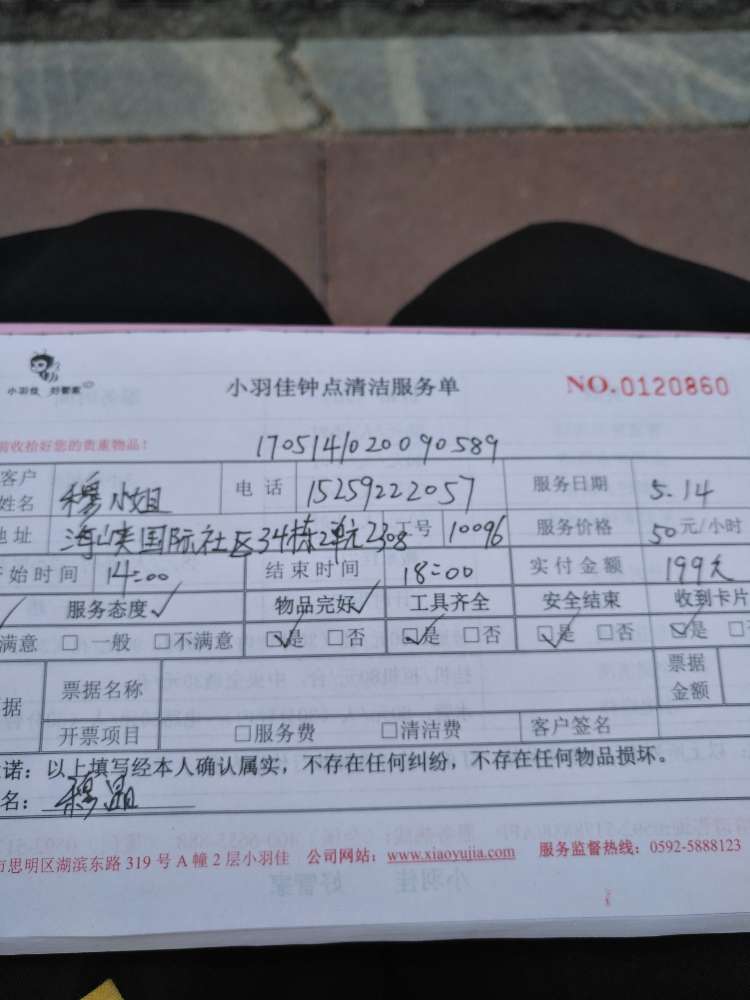 小羽佳 好管家
小羽佳钟点清洁服务单
NO.0120860
前收拾好您的贵重物品！
1705141020090589
客户姓名 穆小姐 电话 15259222057 服务日期 5.14
地址 海峡国际社区34栋2单元2308 工号 10096 服务价格 50元/小时
开始时间 14:00 结束时间 18:00 实付金额 199元
服务态度✓ 物品完好✓ 工具齐全 安全结束 收到卡片
满意 □一般 □不满意 ☑是 □否 ☑是 □否 ☑是 □否 ☑是 □
据 票据名称 票据金额
开票项目 □服务费 □清洁费 客户签名
诺：以上填写经本人确认属实，不存在任何纠纷，不存在任何物品损坏。
名：穆晶
市思明区湖滨东路319号A幢2层小羽佳 公司网站：www.xiaoyujia.com 服务监督热线：0592-5888123